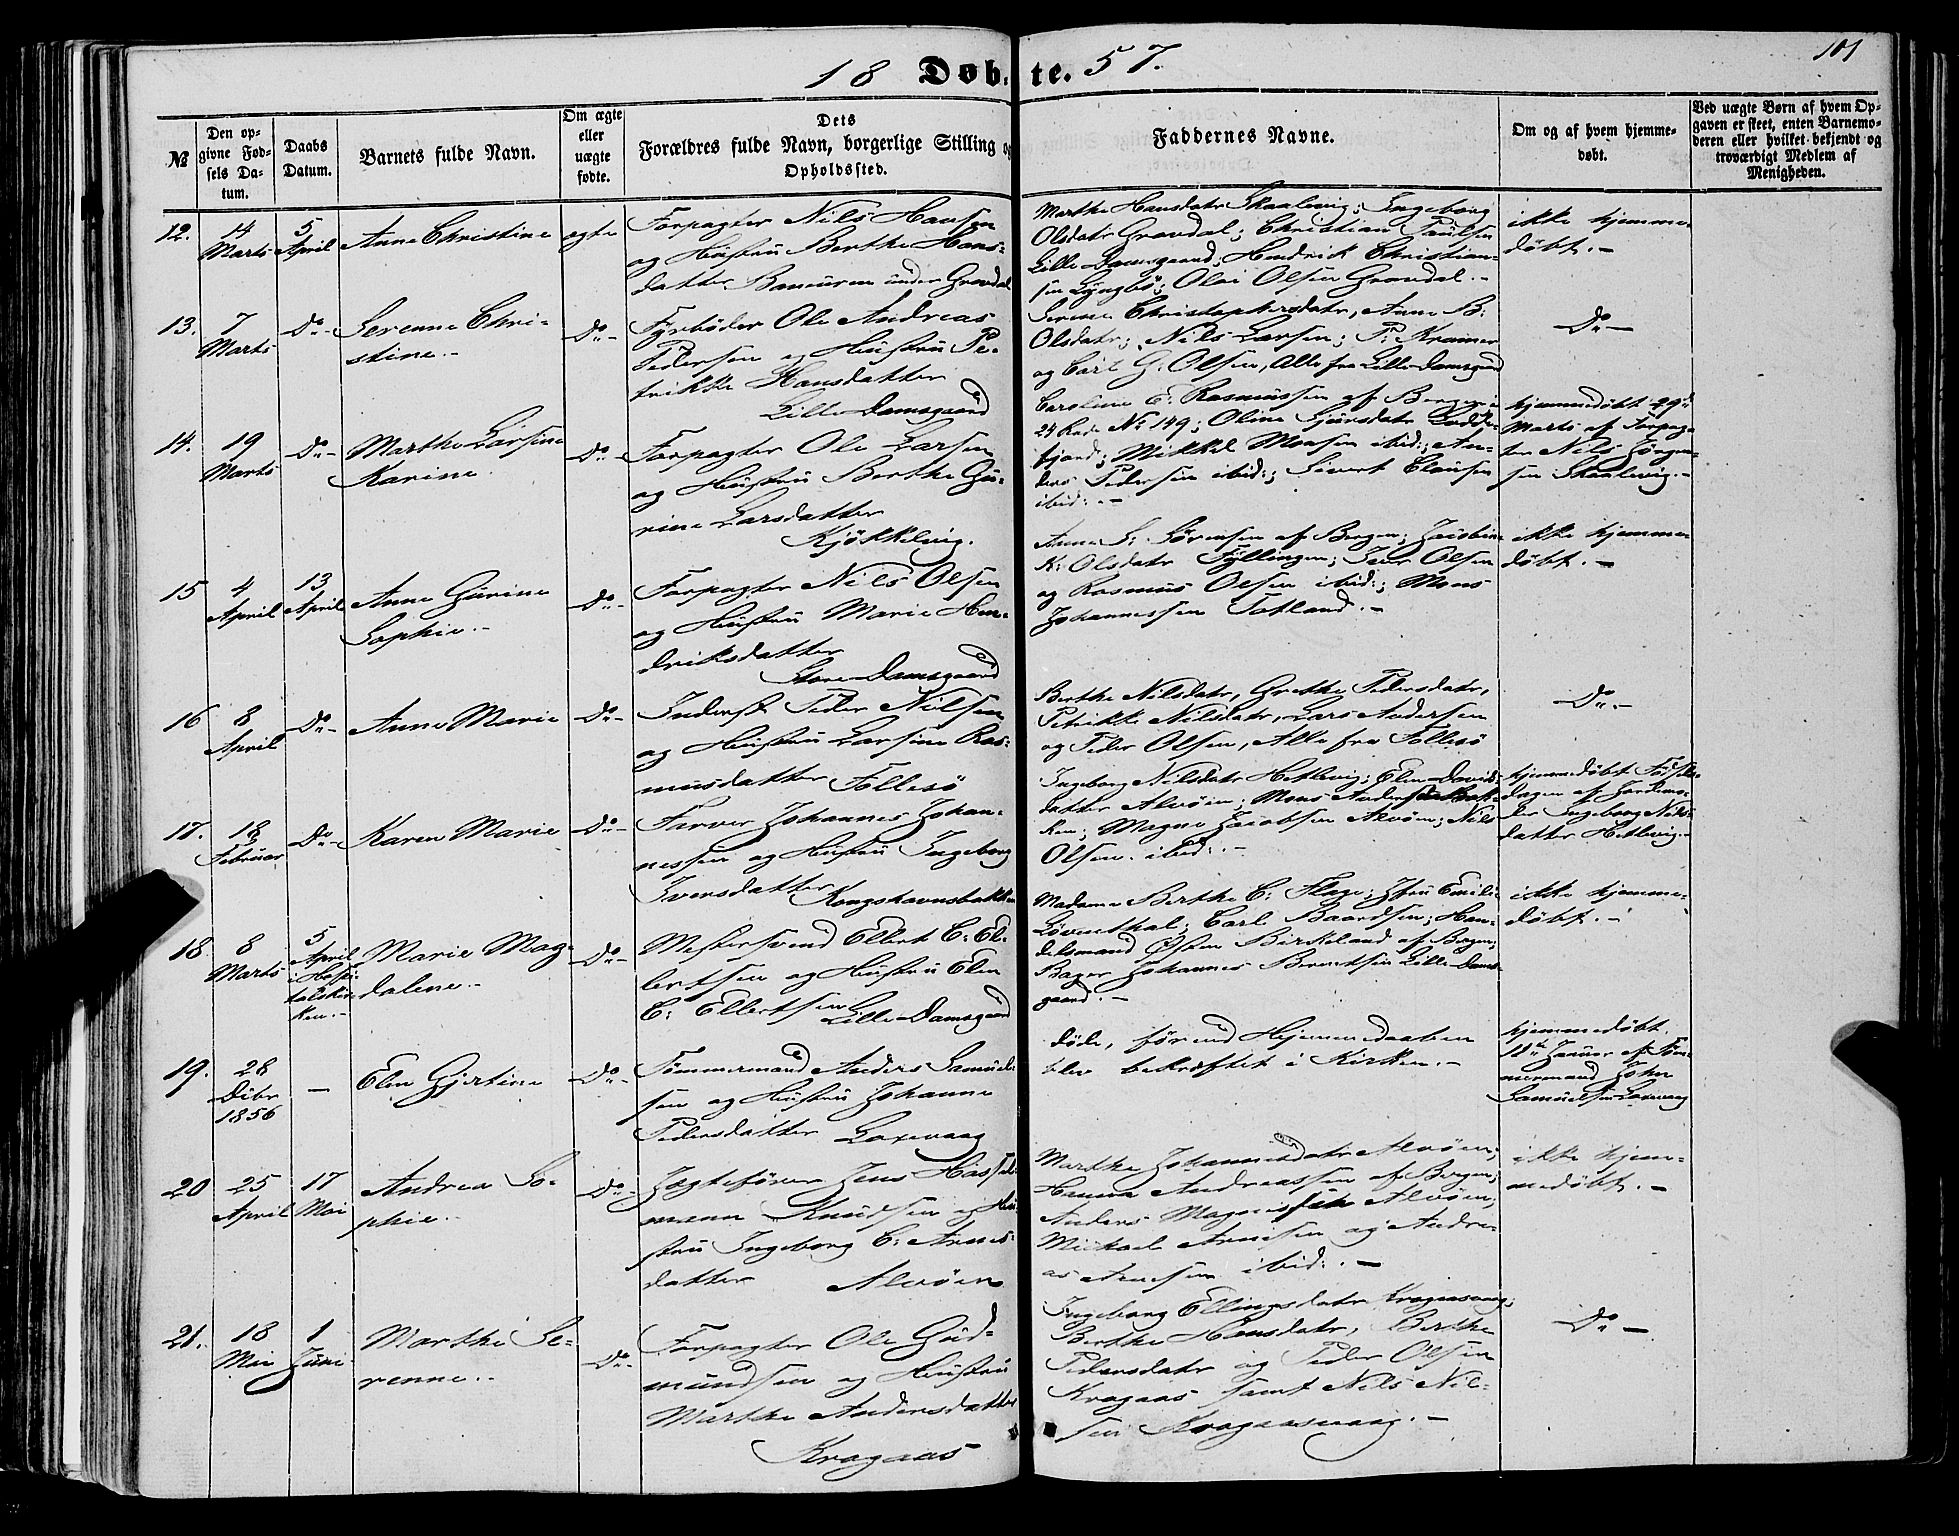 101
18 Døbte. 57.
№
Den opgivne Fødsels Datum.
Daabs Datum.
Barnets fulde Navn.
Om ægte eller uægte fødte.
Dets Forældres fulde Navn, borgerlige Stilling og Opholdssted.
Faddernes Navne.
Om og af hvem hjemmedøbt.
Ved uægte Børn af hvem Opgaven er skeet, enten Barnemoderen eller hvilket bekjendt og troværdigt Medlem af Menigheden.
12. 14 Marts 5 April Anne Christine egte
Forpagter Nils Hansen
og Hustru Berthe Hans-
datter Baneuren under Gravdal
Marthe Hansdatr Skaalevig; Ingeborg
Olsdatr Gravdal; Christian Paulsen
Lille Damsgaard; Hendrik Christian-
sen Lyngbö; Olai Olsen Gravdal.-
ikke hjemme-
døbt.-
13. 7 Marts Do- Serenne Chri-
stine.- Do-
Fyrbøder Ole Andreas
Pedersen og Hustru Pe-
trikke Hansdatter
Lille Damsgaard
Serene Christophersdatr, Anne B:
Olsdatr; Nils Larsen; P. Kramer
og Carl G. Olsen, Alle fra Lille Damsgaard
Do-
14. 19 Marts Do- Marthe Larsine
Karine. Do-
Forpagter Ole Larsen
og Hustru Berthe Gu-
rine Larsdatter
Kjøkkelvig.
Caroline E: Rasmussen af Bergen
24 Rode No 149; Oline Sjursdatr Lodde-
fjord; Mikkel Monsen ibid:; An-
ders Pedersen ibid:; Sivert Clausen
ibid:.-
hjemmedøbt 29de
Marts af Forpag-
ter Nils Jörgen-
sen Skaalevig.-
15 4 April 13 April Anne Gurine
Sophie.- Do-
Forpagter Nils Olsen
og Hustru Marie Hen-
driksdatter
Store Damsgaard
Anne S: Sörensen af Bergen; Jacobine
K: Olsdatr Fyllingen; Iver Olsen
og Rasmus Olsen ibid:; Mons
Johannessen Totland.-
ikke hjemme
døbt.-
16 8 April Do- Anne Marie Do-
Inderst Peder Nilsen
og Hustru Larsine Ras-
musdatter Follesö
Berthe Nilsdatr, Grethe Pedersdatr,
Petrikke Nilsdatr, Lars Andersen
og Peder Olsen, Alle fra Follesö
Do-
17. 18 Februar Do- Karen Marie Do-
Farver Johannes Johan-
nessen og Hustru Ingeborg
Iversdatter Kongshavnsbakken
Ingeborg Nilsdatr Hetlevig; Elen Davids-
datter Alvöen; Mons Andersen
ken; Magne Jacobsen Alvöen; Nils
Olsen ibid:.-
hjemmedøbt Födsels-
dagen af Jordemo-
der Ingeborg Nils-
datter Hetlevig.-
18 8 Marts 5 April i Hospi-
talskir-
ken.- Marie Mag-
dalene.- Do-
Mestersvend Ellert C: El-
lertsen og Hustru Elen
C: Ellertsen Lille Damsgaard
Madame Berthe C: Flage; Jfru Emilie
Löventhal; Carl Baardsen; Han-
delsmand Östen Birkeland af Bergen;
Bager Johannes Berentsen Lille Dams-
gaard.-
ikke hjemme-
døbt.-
19. 28 Dcbr 1856 - Elen Gjertine Do-
Tömmermand Anders Samuel-
sen og Hustru Johanne
Pedersdatter Loxevaag
döde, förend Hjemmedaaben
blev bekræftet i Kirken.-
hjemmedøbt.
18de Januar af Töm-
mermand John
Samuelsen Loxevaag
20 25 April 17 Mai Andrea So-
phie.- Do-
Jagtefører Jens Hassel-
mann Knudsen og Hu-
stru Ingeborg C: Arnes-
datter Alvöen
Marthe Johannesdatr Alvöen;
Hanna Andreassen af Bergen;
Anders Magnussen Alvöen;
Mickael Arnesen og Andre-
as Arnesen ibid:.-
ikke hjem-
medøbt.-
21. 18 Mai 1 Juni Marthe Se-
renne.- Do-
Forpagter Ole Gud-
mundsen og Hustru
Marthe Andersdatter
Kragaas
Ingeborg Ellingsdatr Kragaasvaag;
Berthe Hansdatr, Berthe
Pedersdatr og Peder Olsen
Kragaas samt Nils Nil-
sen Kragaasvaag.-
Do-